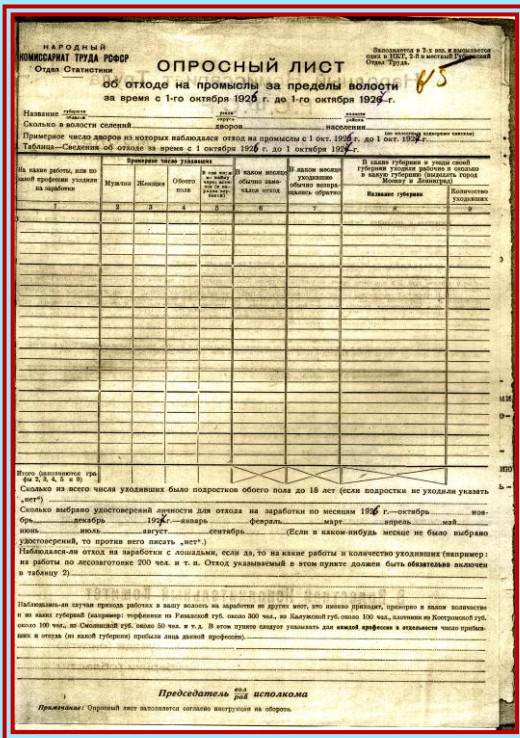 НАРОДНЫЙ
КОМИССАРИАТ ТРУДА РСФСР
Отдел Статистики
Заполняется в 2-х экз. и высылается
один в НКТ, 2-й в местный Губернский
Отдел Труда.
615
ОПРОСНЫЙ ЛИСТ
об отходе на промыслы за пределы волости
за время с 1-го октября 1926 г. до 1-го октября 1927 г.
Название губернии области уезда округа волости района
Сколько в волости селений дворов населения
Примерное число дворов из которых наблюдался отход на промыслы с 1 окт. 1926 г. до 1 окт. 1927 г.
Таблица—Сведения об отходе за время с 1 октября 1926 г. до 1 октября 1927 г.
На какие работы, или по какой профессии уходили на заработки
Примерное число уходивших
Мужчин
Женщин
Обоего пола
В каком месяце обычно замечался отход
В каком месяце уходившие обычно возвращались обратно
В какие губернии и уезды своей губернии уходили рабочие и сколько в какую губернию (выделять город Москву и Ленинград)
Название губернии
Количество уходивших
1 2 3 4 5 6 7 8 9
Итого (заполняются графы 2, 3, 4, 5 и 9)
Сколько из всего числа уходивших было подростков обоего пола до 18 лет (если подростки не уходили указать
„нет")
Сколько выбрано удостоверений личности для отхода на заработки по месяцам 1926 г.—октябрь ноя-
брь декабрь 1927 г.—январь февраль март апрель май
июнь июль август сентябрь (Если в каком-нибудь месяце не было выбрано
удостоверений, то против него писать „нет".)
Наблюдался-ли отход на заработки с лошадьми, если да, то на какие работы и количество уходивших (например:
на работы по лесозаготовке 200 чел. и т. п. Отход указываемый в этом пункте должен быть обязательно включен
в таблицу 2)
Наблюдались-ли случаи прихода рабочих в вашу волость на заработки из других мест, кто именно приходит, примерно в каком количестве
и из каких губерний (например: торфяники из Рязанской губ. около 300 чел., из Калужской губ. около 100 чел., плотники из Костромской губ.
около 100 чел., из Смоленской губ. около 50 чел. и т. д. В этом пункте следует указывать для каждой профессии в отдельности число прибыв-
ших и откуда (из какой губернии) прибыли лица данной профессии).
Председатель вол рай исполкома
Примечание: Опросный лист заполняется согласно инструкции на обороте.